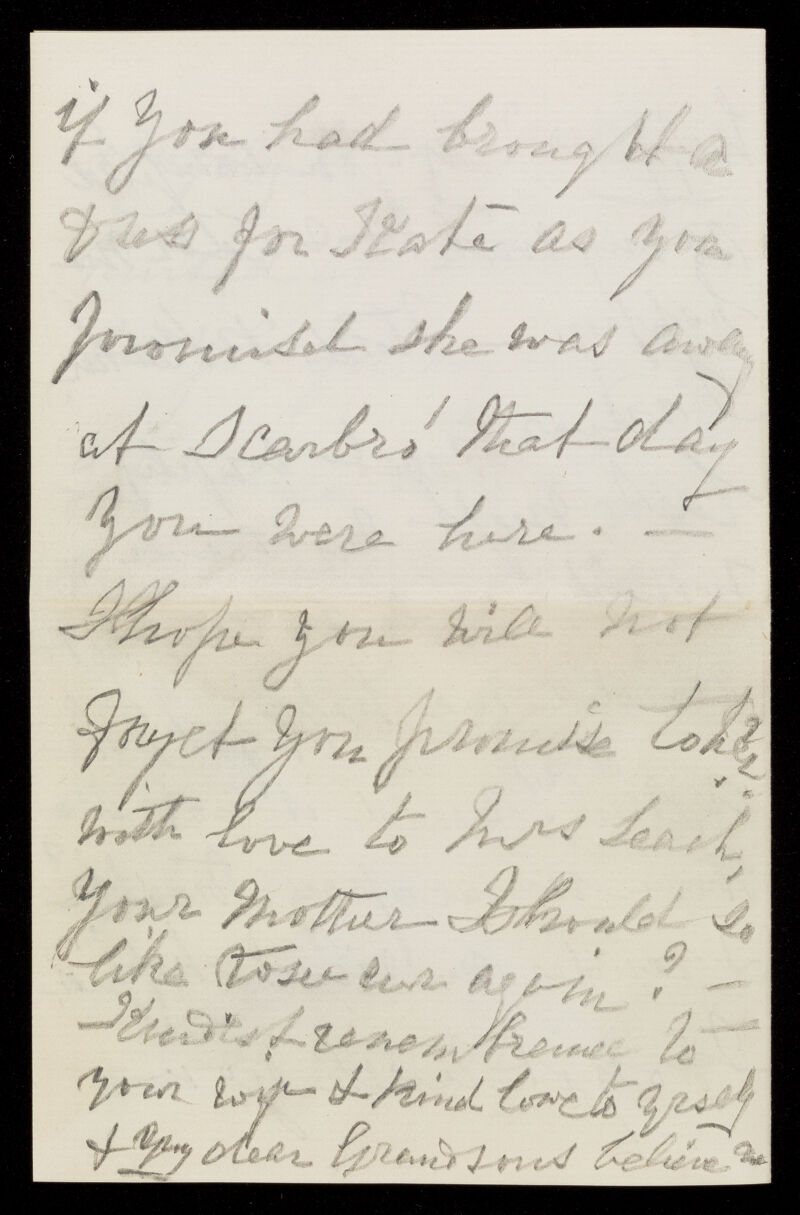 if you had brought a
dress for Kate as you
promised she was away
at Scarbro' that day
you were here. —
I hope you will not
forget you promise to her
with love to Mrs Leach,
your Mother I should so
like to see her again? —
Kindest remembrance to
your wife & kind love to yrself
& my dear Grandsons believe me